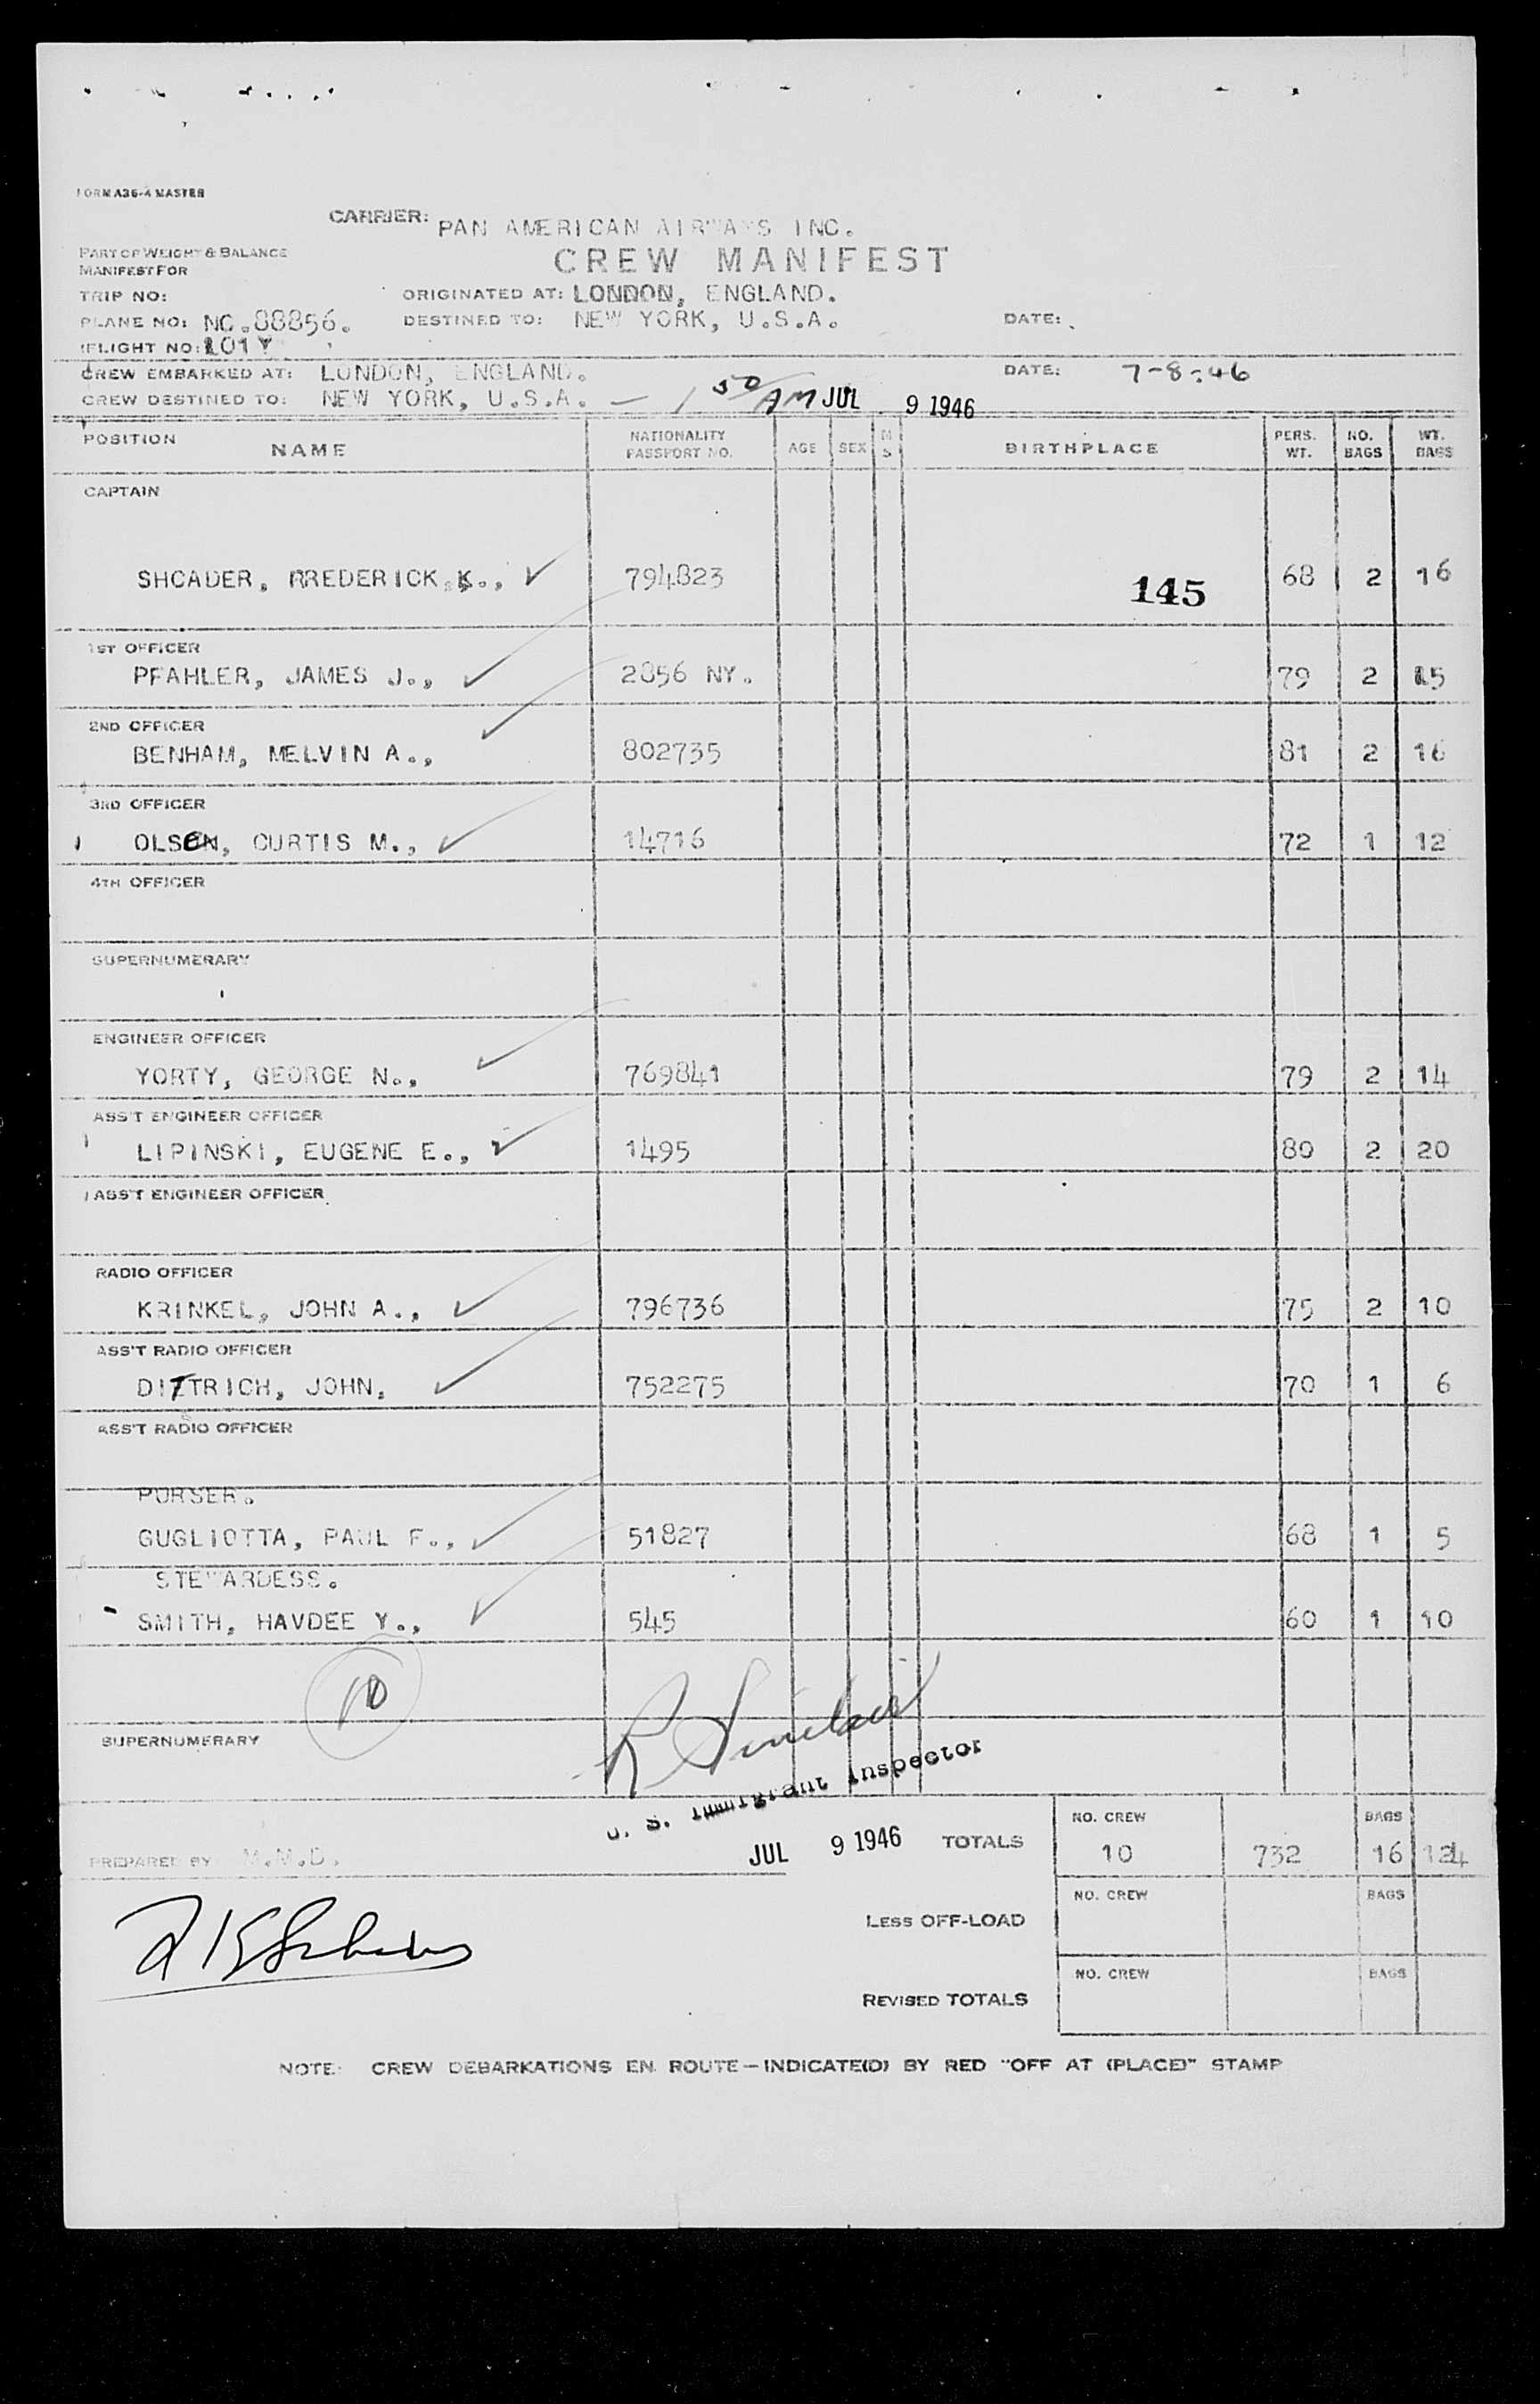 FORM A36-4 MASTER
CARRIER: PAN AMERICAN AIRWAYS INC.
PART OF WEIGHT & BALANCE
MANIFEST FOR
CREW MANIFEST
TRIP NO:
ORIGINATED AT: LONDON, ENGLAND.
PLANE NO: NC.88856. DESTINED TO: NEW YORK, U.S.A. DATE:
FLIGHT NO: 101Y
CREW EMBARKED AT: LONDON, ENGLAND. DATE: 7-8-46
CREW DESTINED TO: NEW YORK, U.S.A. — 1 50 AM JUL 9 1946
POSITION NAME NATIONALITY PASSPORT NO. AGE SEX M S BIRTHPLACE PERS. WT. NO. BAGS WT. BAGS
CAPTAIN
SHCADER, RREDERICK.K., 794823 145 68 2 16
1ST OFFICER
PFAHLER, JAMES J., 2856 NY. 79 2 15
2ND OFFICER
BENHAM, MELVIN A., 802735 81 2 16
3RD OFFICER
OLSEN, CURTIS M., 14716 72 1 12
4TH OFFICER
SUPERNUMERARY
ENGINEER OFFICER
YORTY, GEORGE N., 769841 79 2 14
ASS'T ENGINEER OFFICER
LIPINSKI, EUGENE E., 1495 80 2 20
ASS'T ENGINEER OFFICER
RADIO OFFICER
KRINKEL, JOHN A., 796736 75 2 10
ASS'T RADIO OFFICER
DITTRICH, JOHN, 752275 70 1 6
ASS'T RADIO OFFICER
PURSER.
GUGLIOTTA, PAUL F., 51827 68 1 5
STEWARDESS.
SMITH, HAVDEE Y., 545 60 1 10
10
SUPERNUMERARY
R Sinclair
U. S. Immigrant Inspector
NO. CREW BAGS
PREPARED BY M.M.D. JUL 9 1946 TOTALS 10 732 16 124
NO. CREW BAGS
LESS OFF-LOAD
NO. CREW BAGS
REVISED TOTALS
NOTE: CREW DEBARKATIONS EN ROUTE—INDICATE(D) BY RED "OFF AT (PLACE)" STAMP